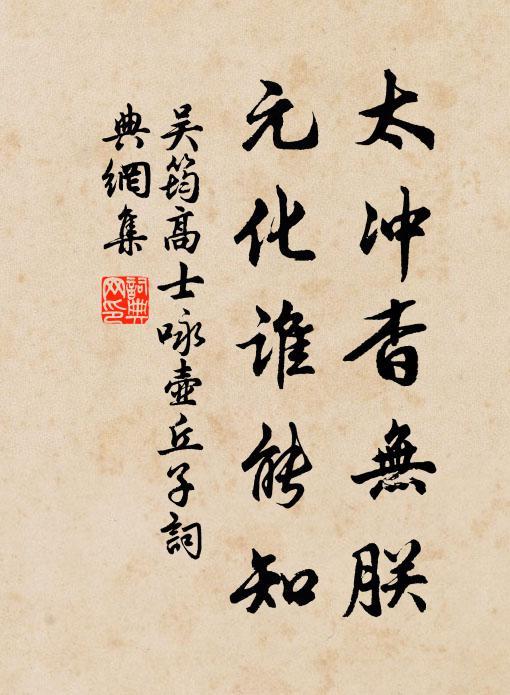 太冲杳無朕
元化谁能知
吴筠高士咏壺丘子詞
典網集
詞典網印